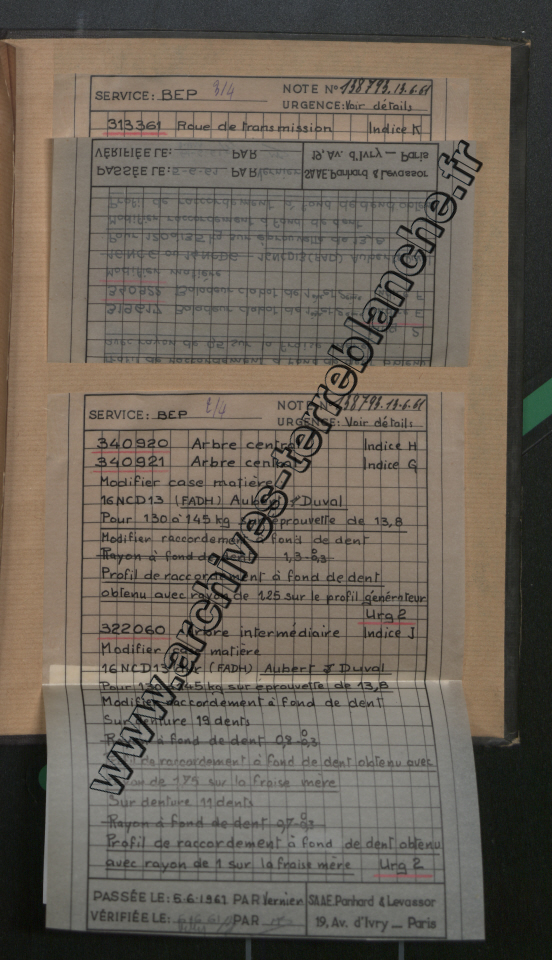 SERVICE: BEP 3/4 NOTE N° 138793. 13.6.61
URGENCE: Voir détails
313361 Roue de transmission Indice K
VÉRIFIÉE LE: PAR 19, Av. d'Ivry _ Paris
PASSÉE LE: 5-6-61 PAR Vernier S.A.A.E. Panhard & Levassor
Profil de raccordement à fond de dent
Modifier raccordement à fond de dent
Pour 130 à 145 kg sur éprouvette de 13,8
Modifier matière
340922 Baladeur clabot de
319617 Baladeur clabot de
avec rayon de sur la fraise
SERVICE: BEP 2/4 NOTE N° 138793. 13.6.61
URGENCE: Voir détails
340920 Arbre central Indice H
340921 Arbre central Indice G
Modifier case matière
16NCD13 (FADH) Aubert & Duval
Pour 130 à 145 kg sur éprouvette de 13,8
Modifier raccordement à fond de dent
Rayon à fond de dent 1,3 -0,3 0
Profil de raccordement à fond de dent
obtenu avec rayon de 1.25 sur le profil générateur
Urg 2
322060 Arbre intermédiaire Indice J
Modifier case matière
16NCD13 (FADH) Aubert & Duval
Pour 130 à 145 kg sur éprouvette de 13,8
Modifier raccordement à fond de dent
Sur denture 19 dents
Rayon à fond de dent 0,8 -0,3 0
Profil de raccordement à fond de dent obtenu avec
rayon de 1.75 sur la fraise mère
Sur denture 11 dents
Rayon à fond de dent 0,7 -0,3 0
Profil de raccordement à fond de dent obtenu
avec rayon de 1 sur la fraise mère Urg 2
PASSÉE LE: 5.6.1961 PAR Vernier S.A.A.E. Panhard & Levassor
VÉRIFIÉE LE: PAR 19, Av. d'Ivry _ Paris
www.archives-terreblanche.fr